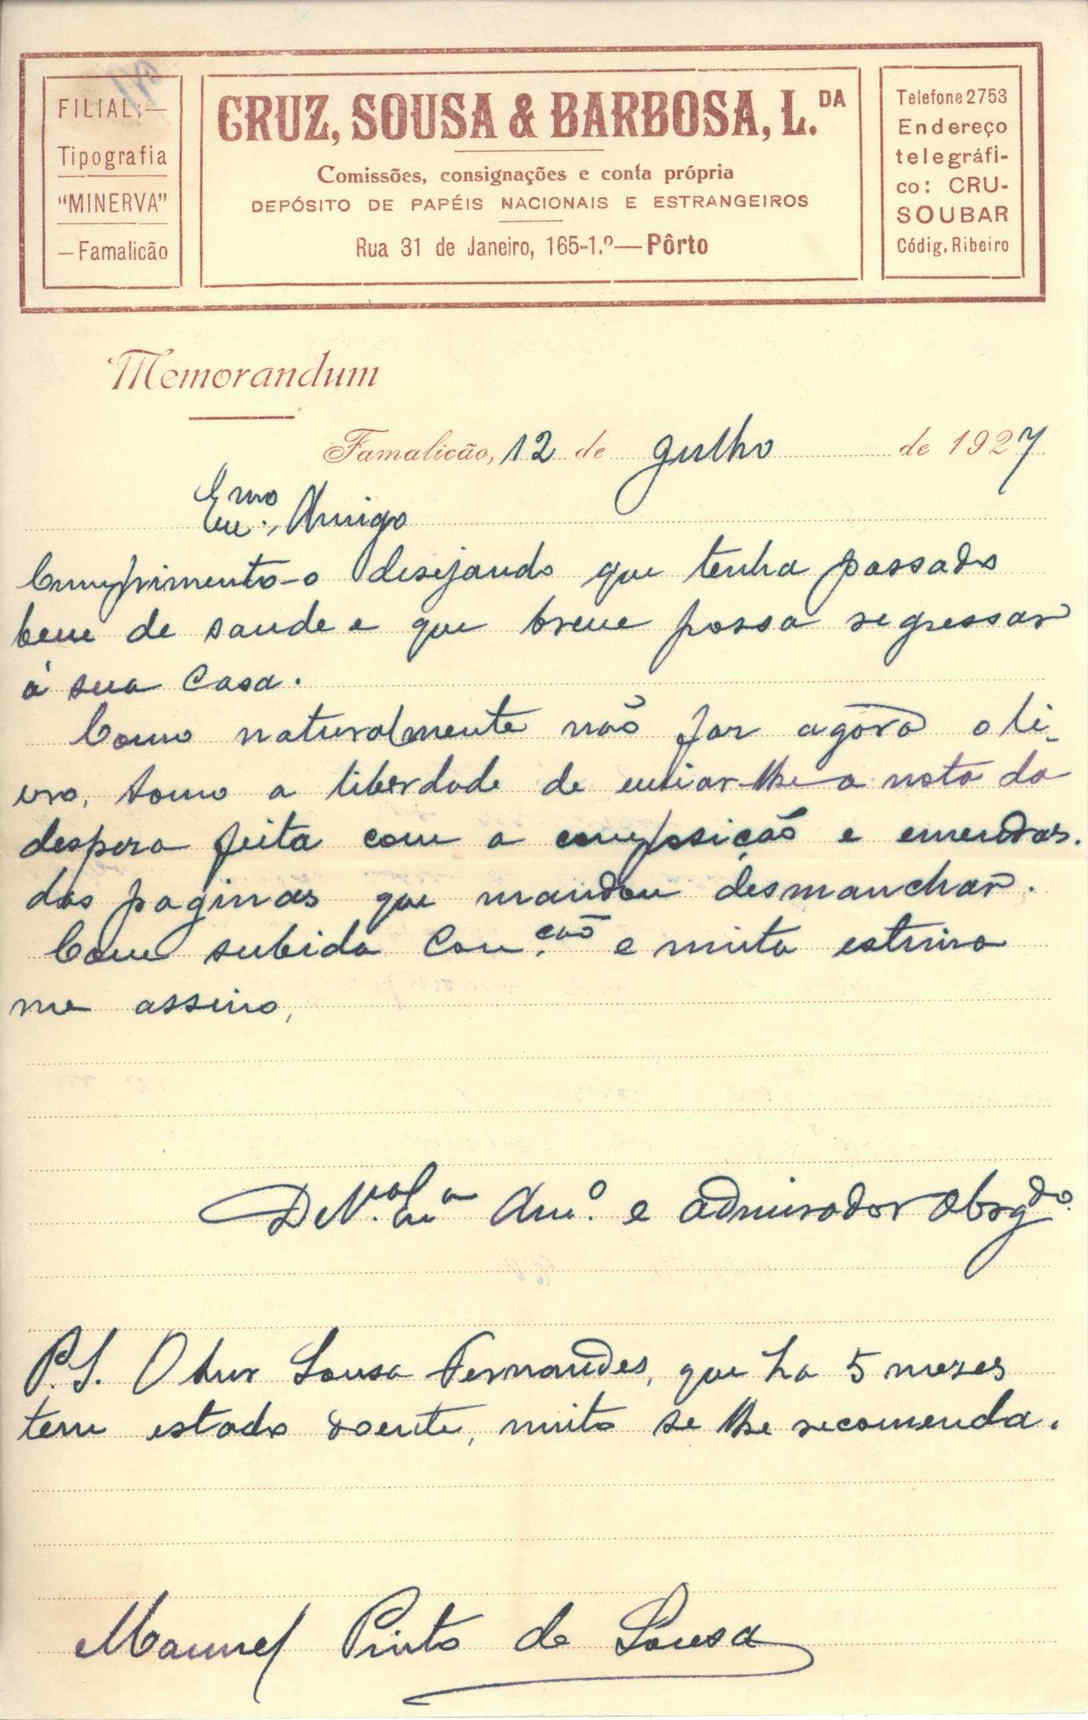 FILIAL:—
Tipografia
"MINERVA"
—Famalicão
CRUZ, SOUSA & BARBOSA, L.DA
Comissões, consignações e conta própria
DEPÓSITO DE PAPÉIS NACIONAIS E ESTRANGEIROS
Rua 31 de Janeiro, 165-1.º—Pôrto
Telefone 2753
Endereço
telegráfi-
co: CRU-
SOUBAR
Códig. Ribeiro
Memorandum
Famalicão, 12 de Julho de 1927
Amigo
Cumprimento-o desejando que tenha passado
bem de saude e que breve possa regressar
á sua casa.
Como naturalmente não faz agora o li-
vro, tomo a liberdade de enviar-lhe a nota da
despeza feita com a composição e emendas.
das paginas que mandou desmanchar.
Com subida Con.ção e muita estima
me assino,
De V. Am.º e admirador Obrgdo.
P.S. O Snr Sousa Fernandes, que ha 5 mezes
tem estado doente, muito se lhe recomenda.
Manuel Pinto de Sousa